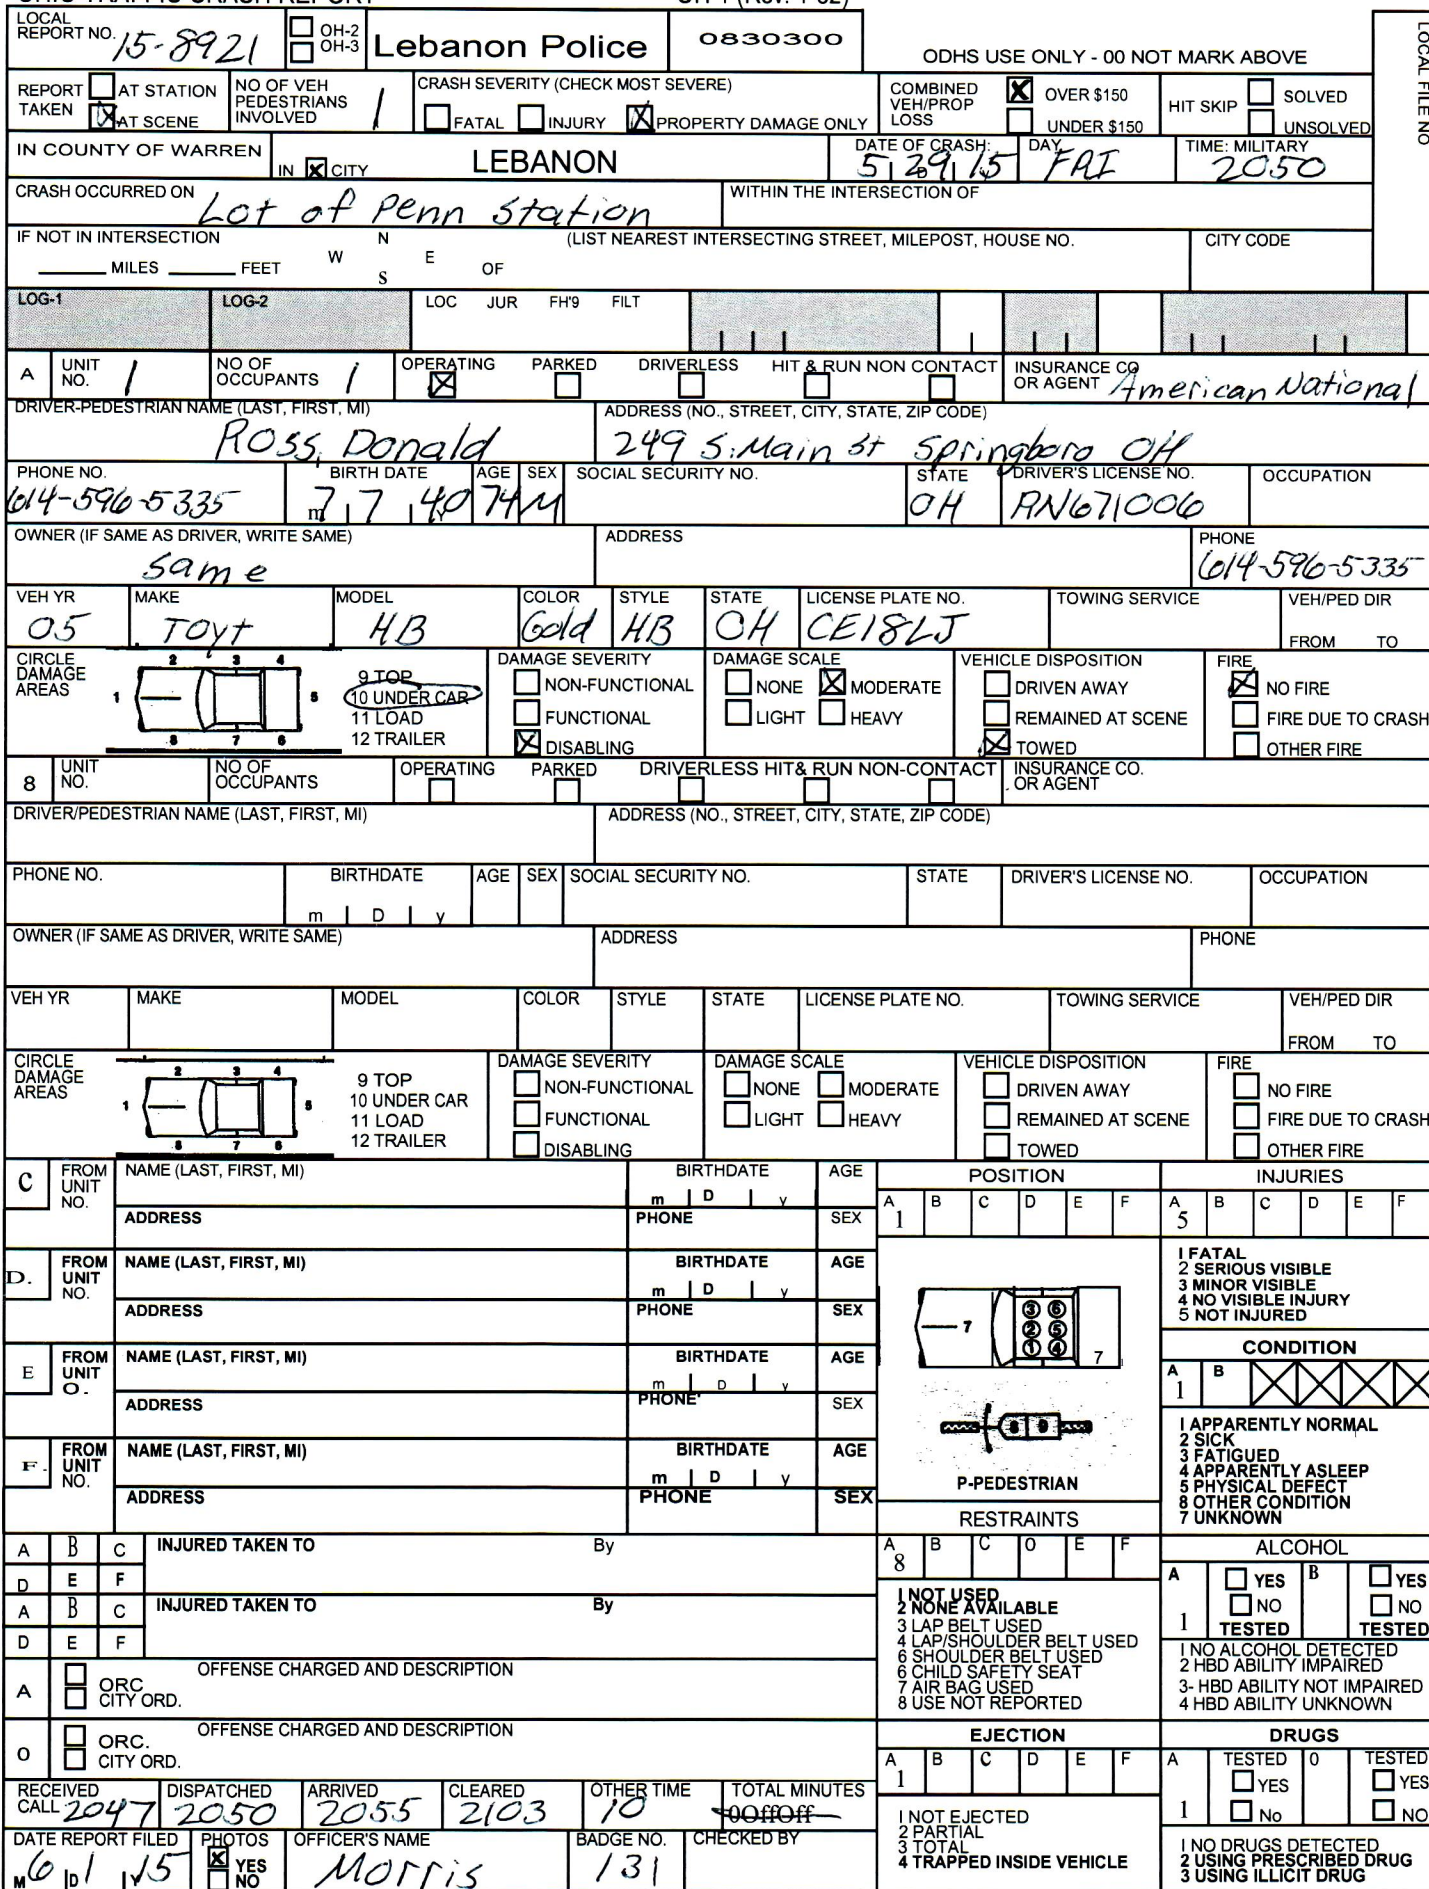 LOCAL REPORT NO. 15-8921 OH-2 OH-3 Lebanon Police 0830300
ODHS USE ONLY - 00 NOT MARK ABOVE
LOCAL FILE NO
REPORT TAKEN AT STATION AT SCENE NO OF VEH PEDESTRIANS INVOLVED 1
CRASH SEVERITY (CHECK MOST SEVERE) FATAL INJURY PROPERTY DAMAGE ONLY
COMBINED VEH/PROP LOSS OVER $150 UNDER $150 HIT SKIP SOLVED UNSOLVED
IN COUNTY OF WARREN IN CITY LEBANON DATE OF CRASH: 5 29 15 DAY FRI TIME: MILITARY 2050
CRASH OCCURRED ON Lot of Penn Station WITHIN THE INTERSECTION OF
IF NOT IN INTERSECTION MILES FEET N W E S OF (LIST NEAREST INTERSECTING STREET, MILEPOST, HOUSE NO. CITY CODE
LOG-1 LOG-2 LOC JUR FH'9 FILT
A UNIT NO. 1 NO OF OCCUPANTS 1 OPERATING PARKED DRIVERLESS HIT & RUN NON CONTACT INSURANCE CO OR AGENT American National
DRIVER-PEDESTRIAN NAME (LAST, FIRST, MI) Ross, Donald ADDRESS (NO., STREET, CITY, STATE, ZIP CODE) 249 S. Main St Springboro OH
PHONE NO. 614-596-5335 BIRTH DATE m 7 7 40 AGE 74 SEX M SOCIAL SECURITY NO. STATE OH DRIVER'S LICENSE NO. RN671006 OCCUPATION
OWNER (IF SAME AS DRIVER, WRITE SAME) same ADDRESS PHONE 614-596-5335
VEH YR 05 MAKE TOYT MODEL HB COLOR Gold STYLE HB STATE OH LICENSE PLATE NO. CE18LJ TOWING SERVICE VEH/PED DIR FROM TO
CIRCLE DAMAGE AREAS 1 2 3 4 5 6 7 8 9 TOP 10 UNDER CAR 11 LOAD 12 TRAILER
DAMAGE SEVERITY NON-FUNCTIONAL FUNCTIONAL DISABLING
DAMAGE SCALE NONE MODERATE LIGHT HEAVY
VEHICLE DISPOSITION DRIVEN AWAY REMAINED AT SCENE TOWED
FIRE NO FIRE FIRE DUE TO CRASH OTHER FIRE
8 UNIT NO. NO OF OCCUPANTS OPERATING PARKED DRIVERLESS HIT& RUN NON-CONTACT INSURANCE CO. OR AGENT
DRIVER/PEDESTRIAN NAME (LAST, FIRST, MI) ADDRESS (NO., STREET, CITY, STATE, ZIP CODE)
PHONE NO. BIRTHDATE m D y AGE SEX SOCIAL SECURITY NO. STATE DRIVER'S LICENSE NO. OCCUPATION
OWNER (IF SAME AS DRIVER, WRITE SAME) ADDRESS PHONE
VEH YR MAKE MODEL COLOR STYLE STATE LICENSE PLATE NO. TOWING SERVICE VEH/PED DIR FROM TO
CIRCLE DAMAGE AREAS 1 2 3 4 5 6 7 8 9 TOP 10 UNDER CAR 11 LOAD 12 TRAILER
DAMAGE SEVERITY NON-FUNCTIONAL FUNCTIONAL DISABLING
DAMAGE SCALE NONE MODERATE LIGHT HEAVY
VEHICLE DISPOSITION DRIVEN AWAY REMAINED AT SCENE TOWED
FIRE NO FIRE FIRE DUE TO CRASH OTHER FIRE
C FROM UNIT NO. NAME (LAST, FIRST, MI) BIRTHDATE m D y AGE
ADDRESS PHONE SEX
D. FROM UNIT NO. NAME (LAST, FIRST, MI) BIRTHDATE m D y AGE
ADDRESS PHONE SEX
E FROM UNIT O. NAME (LAST, FIRST, MI) BIRTHDATE m D y AGE
ADDRESS PHONE' SEX
F. FROM UNIT NO. NAME (LAST, FIRST, MI) BIRTHDATE m D y AGE
ADDRESS PHONE SEX
POSITION
A 1 B C D E F
7 3 6 2 5 1 4 7
8 9
P-PEDESTRIAN
INJURIES
A 5 B C D E F
I FATAL
2 SERIOUS VISIBLE
3 MINOR VISIBLE
4 NO VISIBLE INJURY
5 NOT INJURED
CONDITION
A 1 B
I APPARENTLY NORMAL
2 SICK
3 FATIGUED
4 APPARENTLY ASLEEP
5 PHYSICAL DEFECT
8 OTHER CONDITION
7 UNKNOWN
A B C D E F INJURED TAKEN TO By
A B C D E F INJURED TAKEN TO By
A ORC CITY ORD. OFFENSE CHARGED AND DESCRIPTION
O ORC. CITY ORD. OFFENSE CHARGED AND DESCRIPTION
RESTRAINTS
A 8 B C O E F
I NOT USED
2 NONE AVAILABLE
3 LAP BELT USED
4 LAP/SHOULDER BELT USED
6 SHOULDER BELT USED
6 CHILD SAFETY SEAT
7 AIR BAG USED
8 USE NOT REPORTED
ALCOHOL
A 1 YES NO TESTED B YES NO TESTED
I NO ALCOHOL DETECTED
2 HBD ABILITY IMPAIRED
3- HBD ABILITY NOT IMPAIRED
4 HBD ABILITY UNKNOWN
EJECTION
A 1 B C D E F
I NOT EJECTED
2 PARTIAL
3 TOTAL
4 TRAPPED INSIDE VEHICLE
DRUGS
A 1 TESTED YES No 0 TESTED YES NO
I NO DRUGS DETECTED
2 USING PRESCRIBED DRUG
3 USING ILLICIT DRUG
RECEIVED CALL 2047 DISPATCHED 2050 ARRIVED 2055 CLEARED 2103 OTHER TIME 10 TOTAL MINUTES 0OffOff
DATE REPORT FILED M 6 D 1 15 PHOTOS YES NO OFFICER'S NAME Morris BADGE NO. 131 CHECKED BY